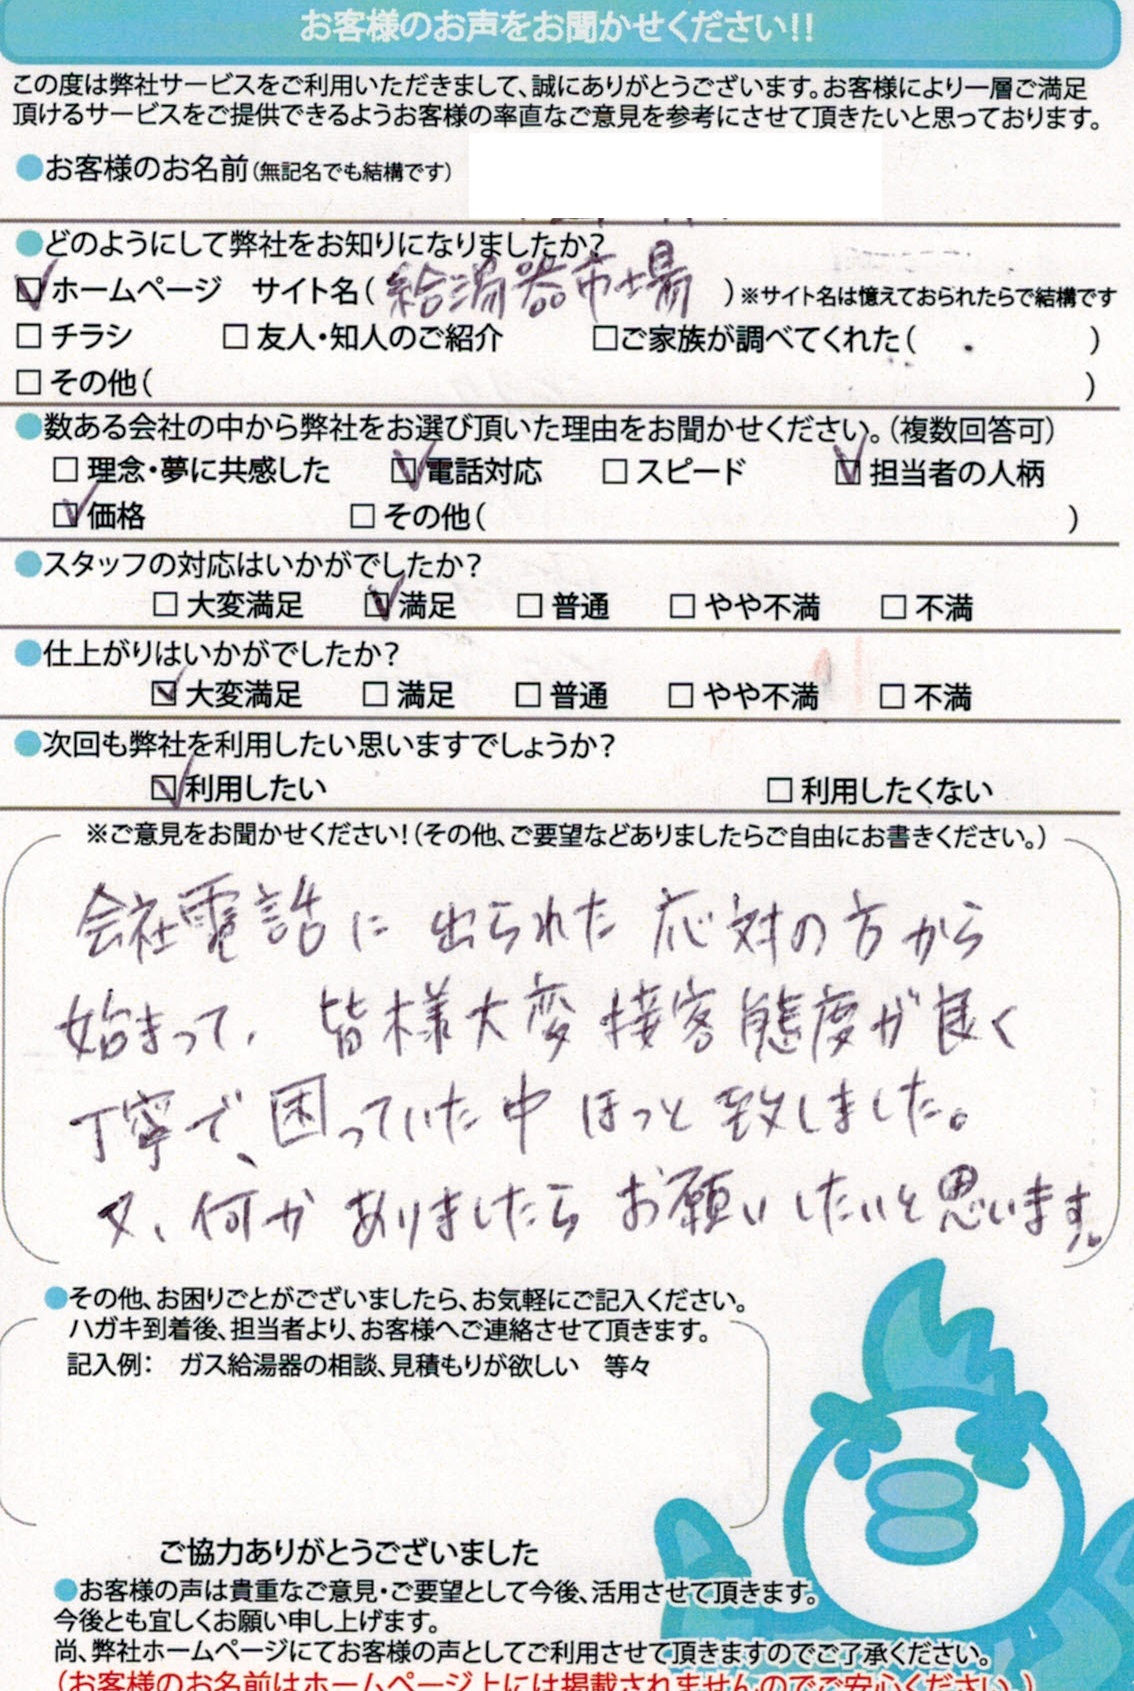 お客様のお声をお聞かせください!!
この度は弊社サービスをご利用いただきまして、誠にありがとうございます。お客様により一層ご満足
頂けるサービスをご提供できるようお客様の率直なご意見を参考にさせて頂きたいと思っております。
●お客様のお名前(無記名でも結構です)
●どのようにして弊社をお知りになりましたか?
☑ホームページ サイト名(給湯器市場)※サイト名は憶えておられたらで結構です
□チラシ □友人・知人のご紹介 □ご家族が調べてくれた( )
□その他( )
●数ある会社の中から弊社をお選び頂いた理由をお聞かせください。(複数回答可)
□理念・夢に共感した ☑電話対応 □スピード ☑担当者の人柄
☑価格 □その他( )
●スタッフの対応はいかがでしたか?
□大変満足 ☑満足 □普通 □やや不満 □不満
●仕上がりはいかがでしたか?
☑大変満足 □満足 □普通 □やや不満 □不満
●次回も弊社を利用したい思いますでしょうか?
☑利用したい □利用したくない
※ご意見をお聞かせください!(その他、ご要望などありましたらご自由にお書きください。)
会社電話に出られた応対の方から
始まって、皆様大変接客態度が良く
丁寧で、困っていた中ほっと致しました。
又、何かありましたらお願いしたいと思います。
●その他、お困りごとがございましたら、お気軽にご記入ください。
ハガキ到着後、担当者より、お客様へご連絡させて頂きます。
記入例: ガス給湯器の相談、見積もりが欲しい 等々
ご協力ありがとうございました
●お客様の声は貴重なご意見・ご要望として今後、活用させて頂きます。
今後とも宜しくお願い申し上げます。
尚、弊社ホームページにてお客様の声としてご利用させて頂きますのでご了承ください。
(お客様のお名前はホームページ上には掲載されませんのでご安心ください。)